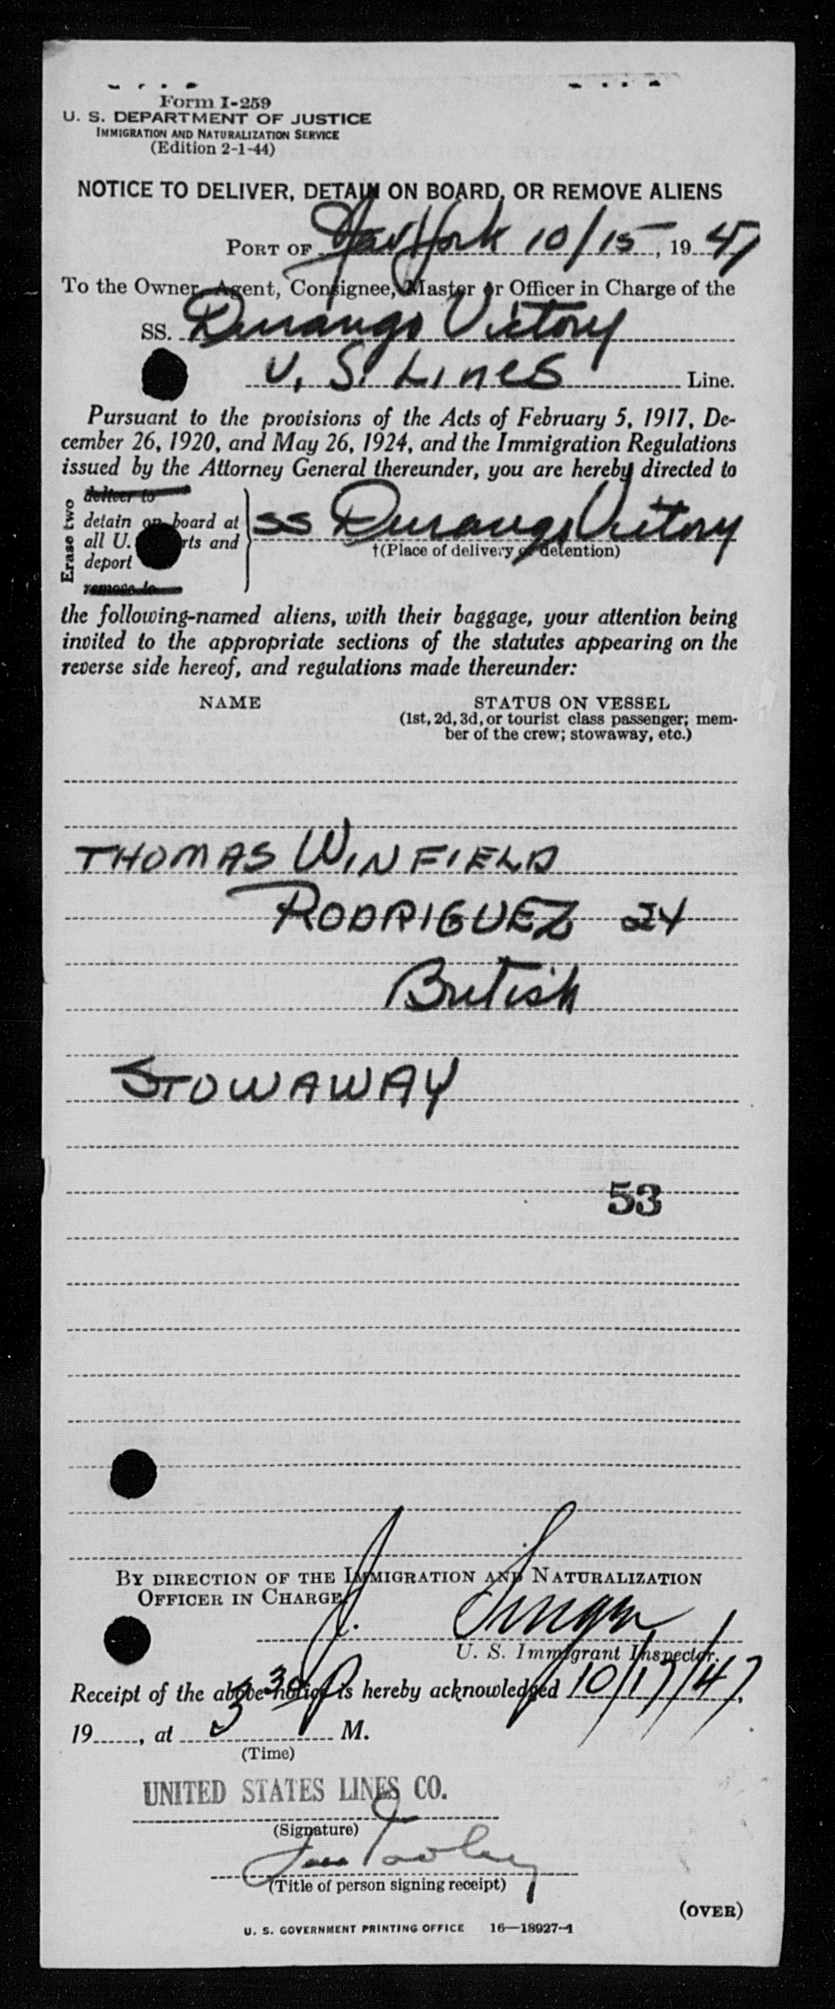 Form I-259
U. S. DEPARTMENT OF JUSTICE
IMMIGRATION AND NATURALIZATION SERVICE
(Edition 2-1-44)
NOTICE TO DELIVER, DETAIN ON BOARD, OR REMOVE ALIENS
PORT OF New York 10/15, 1947
To the Owner, Agent, Consignee, Master or Officer in Charge of the
SS. Durango Victory
U. S. Lines Line.
Pursuant to the provisions of the Acts of February 5, 1917, De-
cember 26, 1920, and May 26, 1924, and the Immigration Regulations
issued by the Attorney General thereunder, you are hereby directed to
Erase two
deliver to
detain on board at
all U. rts and
deport
remove to
SS Durango Victory
†(Place of delivery or detention)
the following-named aliens, with their baggage, your attention being
invited to the appropriate sections of the statutes appearing on the
reverse side hereof, and regulations made thereunder:
NAME STATUS ON VESSEL
(1st, 2d, 3d, or tourist class passenger; mem-
ber of the crew; stowaway, etc.)
THOMAS WINFIELD
RODRIGUEZ 24
British
STOWAWAY
53
BY DIRECTION OF THE IMMIGRATION AND NATURALIZATION
OFFICER IN CHARGE.
J.
U. S. Immigrant Inspector.
Receipt of the above notice is hereby acknowledged 10/17/47,
19......, at 3 30 P M.
(Time)
UNITED STATES LINES CO.
(Signature)
(Title of person signing receipt)
(OVER)
U. S. GOVERNMENT PRINTING OFFICE 16—18927-1